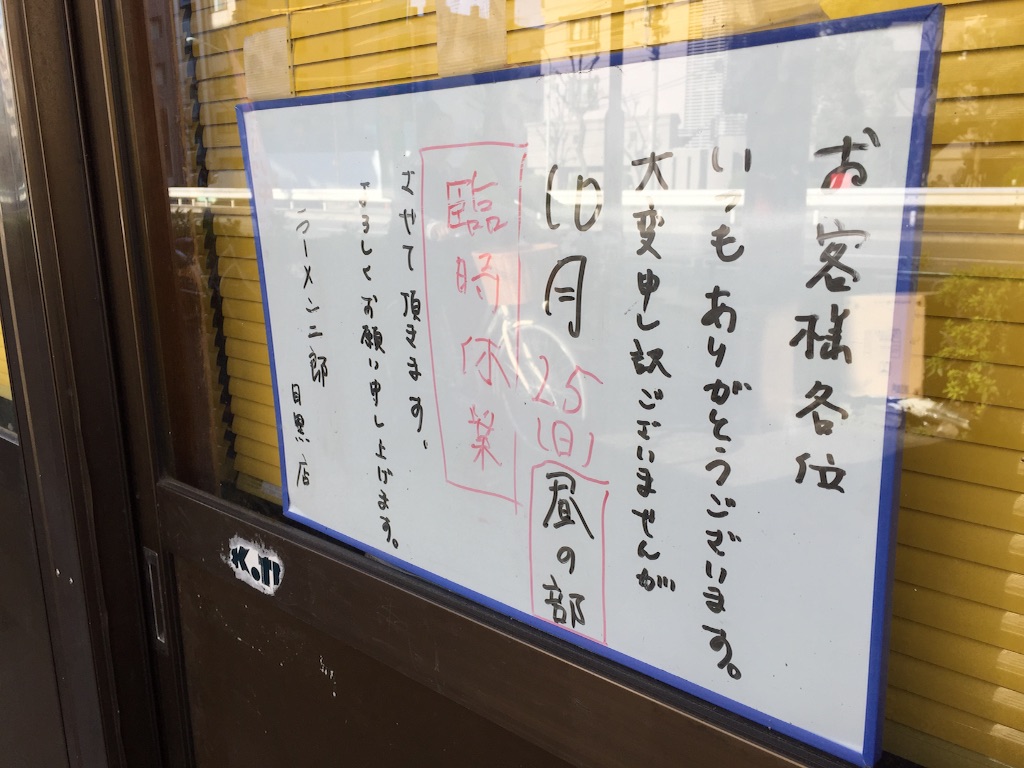 お客様各位
いつもありがとうございます。
大変申し訳ございませんが
10月25(日)昼の部
臨時休業
させて頂きます。
よろしくお願い申し上げます。
ラーメン二郎 目黒店